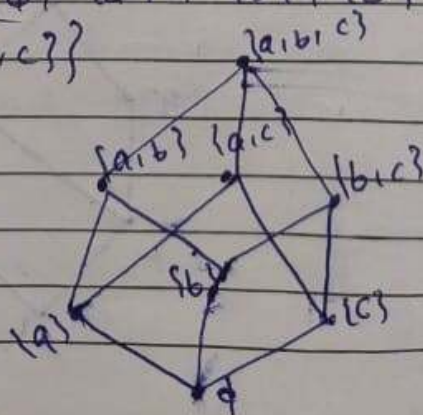 ,c}}
{a,b,c}
{a,b} {a,c}
{b,c}
{b}
{a} {c}
ϕ